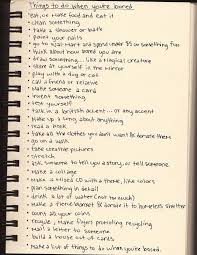 Things to do when you're bored
Eat, or make food and eat it
• clean something
• take a shower or bath
• paint your nails
• go to wal-mart and spend under $5 on something fun
• think about how bored you are
• draw something... like a magical creature
• stare at yourself in the mirror
• play with a dog or cat
• call a friend or relative
• invent something
• rest yourself
• talk in a british accent... or any accent
• make up a song about something
• read a book
• take all the clothes you don't want & donate them
• go on a walk
• take creative pictures
• stretch
• ask someone to tell you a story, or tell someone
• make a collage
• make a mixed CD with a theme, like colors
• plan something in detail
• drink a lot of water (not too much)
• make a fleece blanket & donate it to homeless shelter
• count all your coins
• recycle, make fliers promoting recycling
• mail a letter to someone
• build a house out of cards
• make a list of things to do when you're bored.